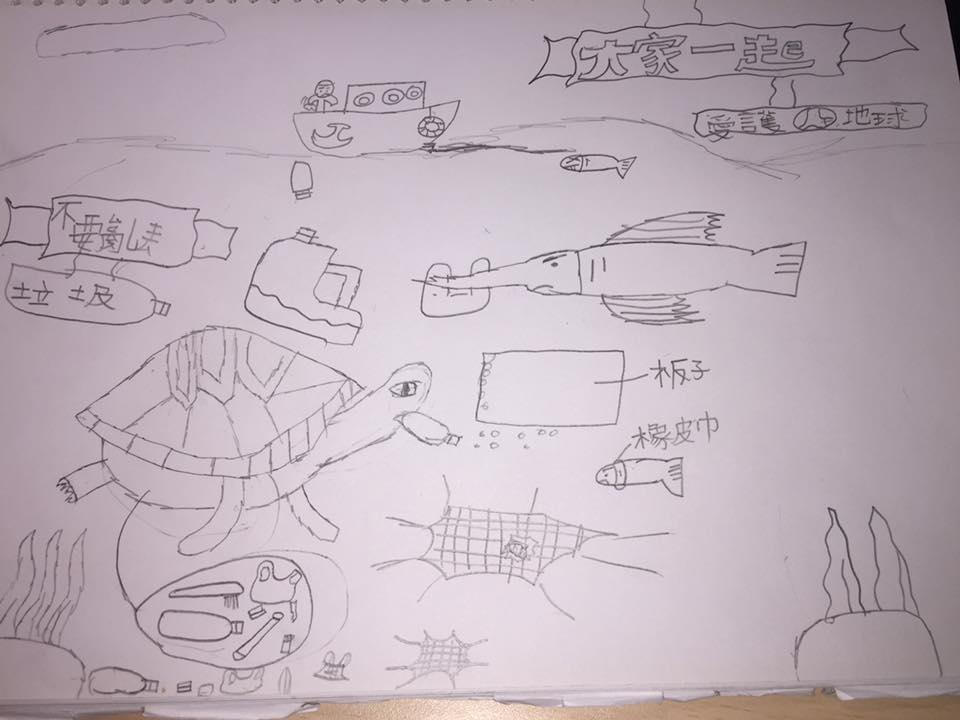 大家一起
愛護地球
不要亂丟
垃圾
板子
橡皮巾